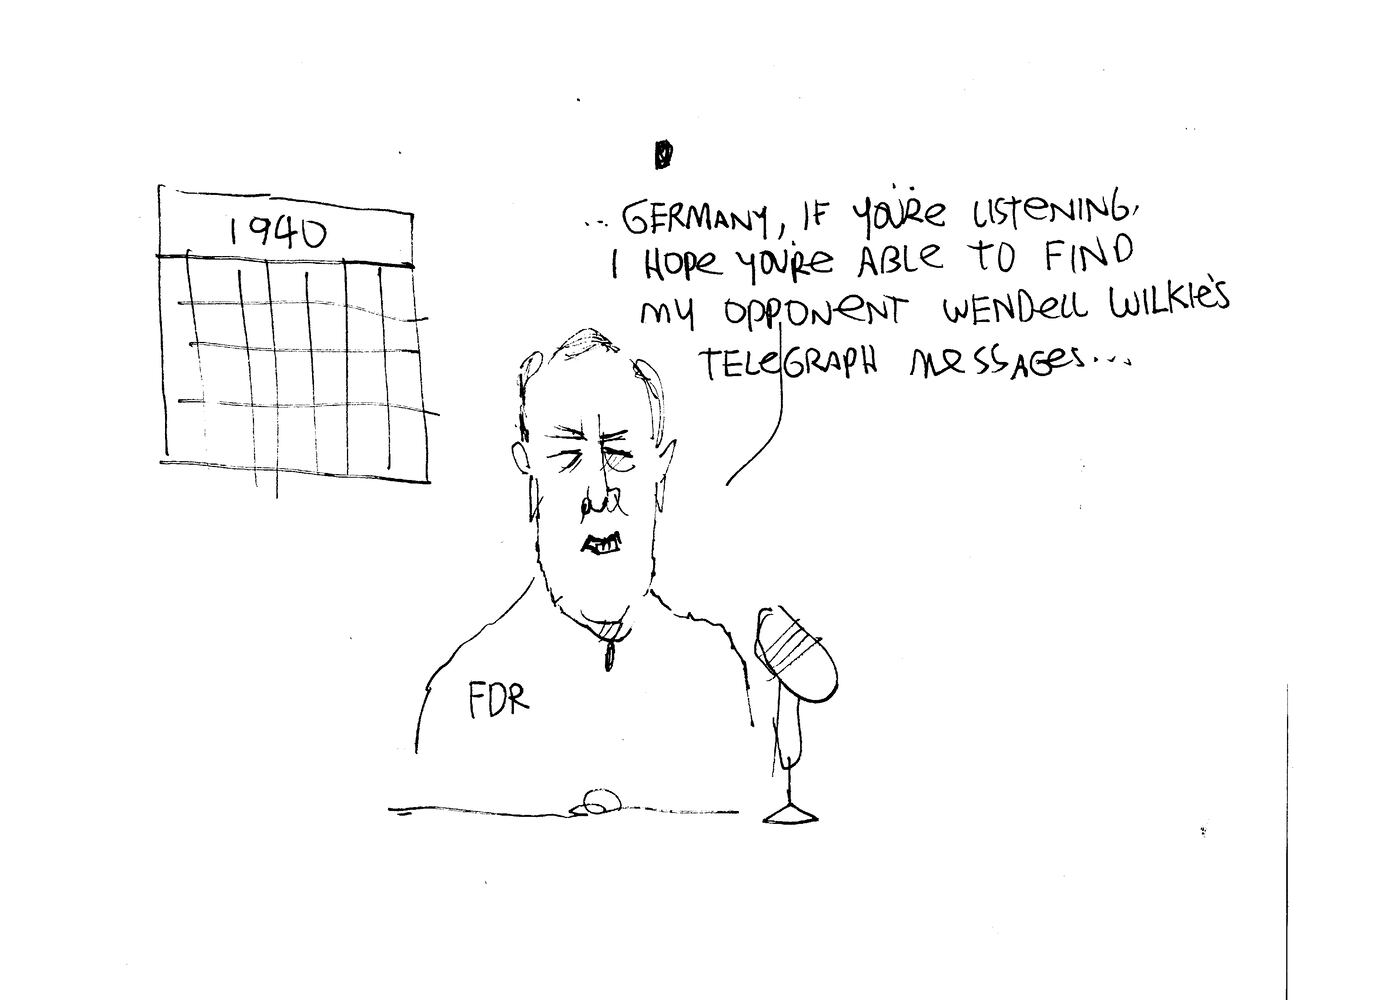 1940
.. GERMANY, IF YOU'RE LISTENING,
I HOPE YOU'RE ABLE TO FIND
MY OPPONENT WENDELL WILKIE'S
TELEGRAPH MESSAGES...
FDR